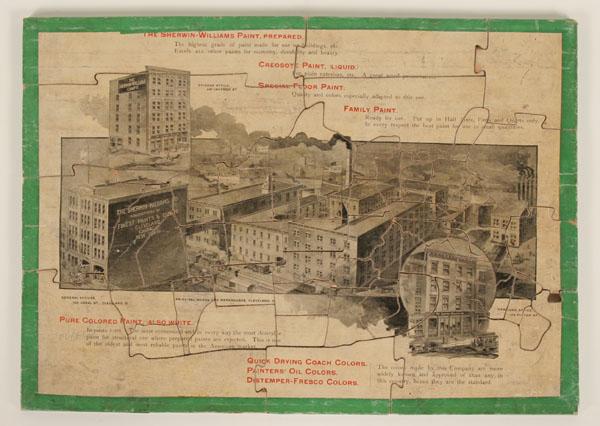 The Sherwin-Williams Paint, Prepared.
The highest grade of paint made for use on buildings, etc.
Excels all other paints for economy, durability and beauty
Creosote Paint, Liquid.
plain exteriors, etc. A great wood
Special Floor Paint.
Quality and colors especially adapted to this use.
Family Paint.
Ready for use. Put up in Half Pints, Pints and Quarts only.
In every respect the best paint for use in small quantities.
CHICAGO OFFICE,
THE SHERWIN-WILLIAMS
FINEST PAINTS & COLORS
CLEVELAND
GENERAL OFFICE,
100 CANAL ST., CLEVELAND, O.
PRINCIPAL WORKS AND WAREHOUSES, CLEVELAND, O.
NEW YORK OFFICE
Pure Colored Paint, also White.
In paste form. The most economical and in every way the most desirable
paint for structural use where prepared paints are rejected. This is one
of the oldest and most reliable paints in the American market.
Quick Drying Coach Colors.
Painters' Oil Colors.
Distemper-Fresco Colors.
The colors made by this Company are more
widely known and approved of than any in
this country, hence they are the standard.